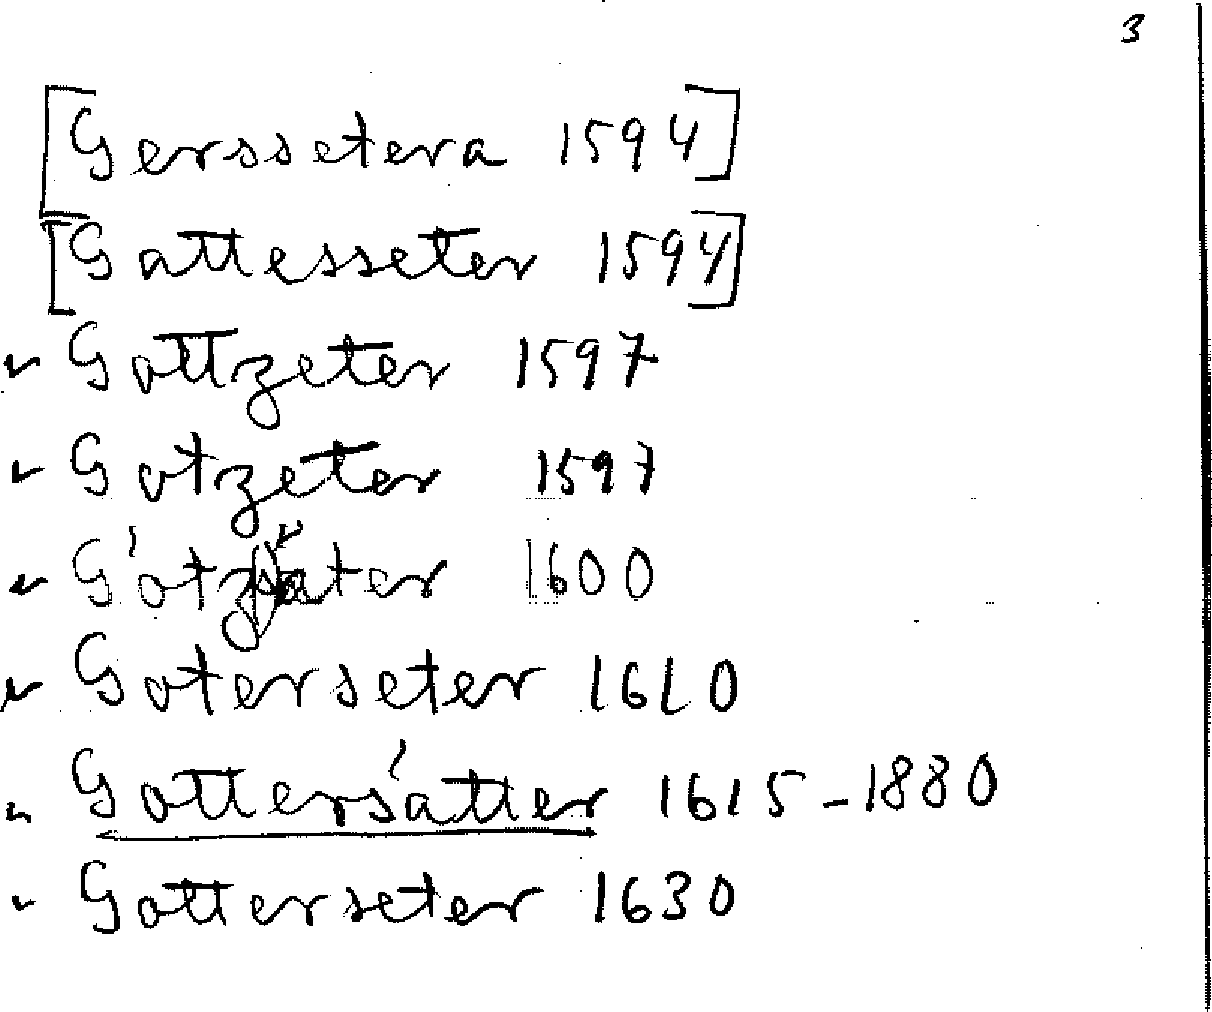 3
[Gerssetera 1594]
[Gattesseter 1594]
" Gottzeter 1597
" Gotzeter 1597
" Götzäter 1600
" Goterseter 1610
" Gottersätter 1615-1880
" Gotterseter 1630